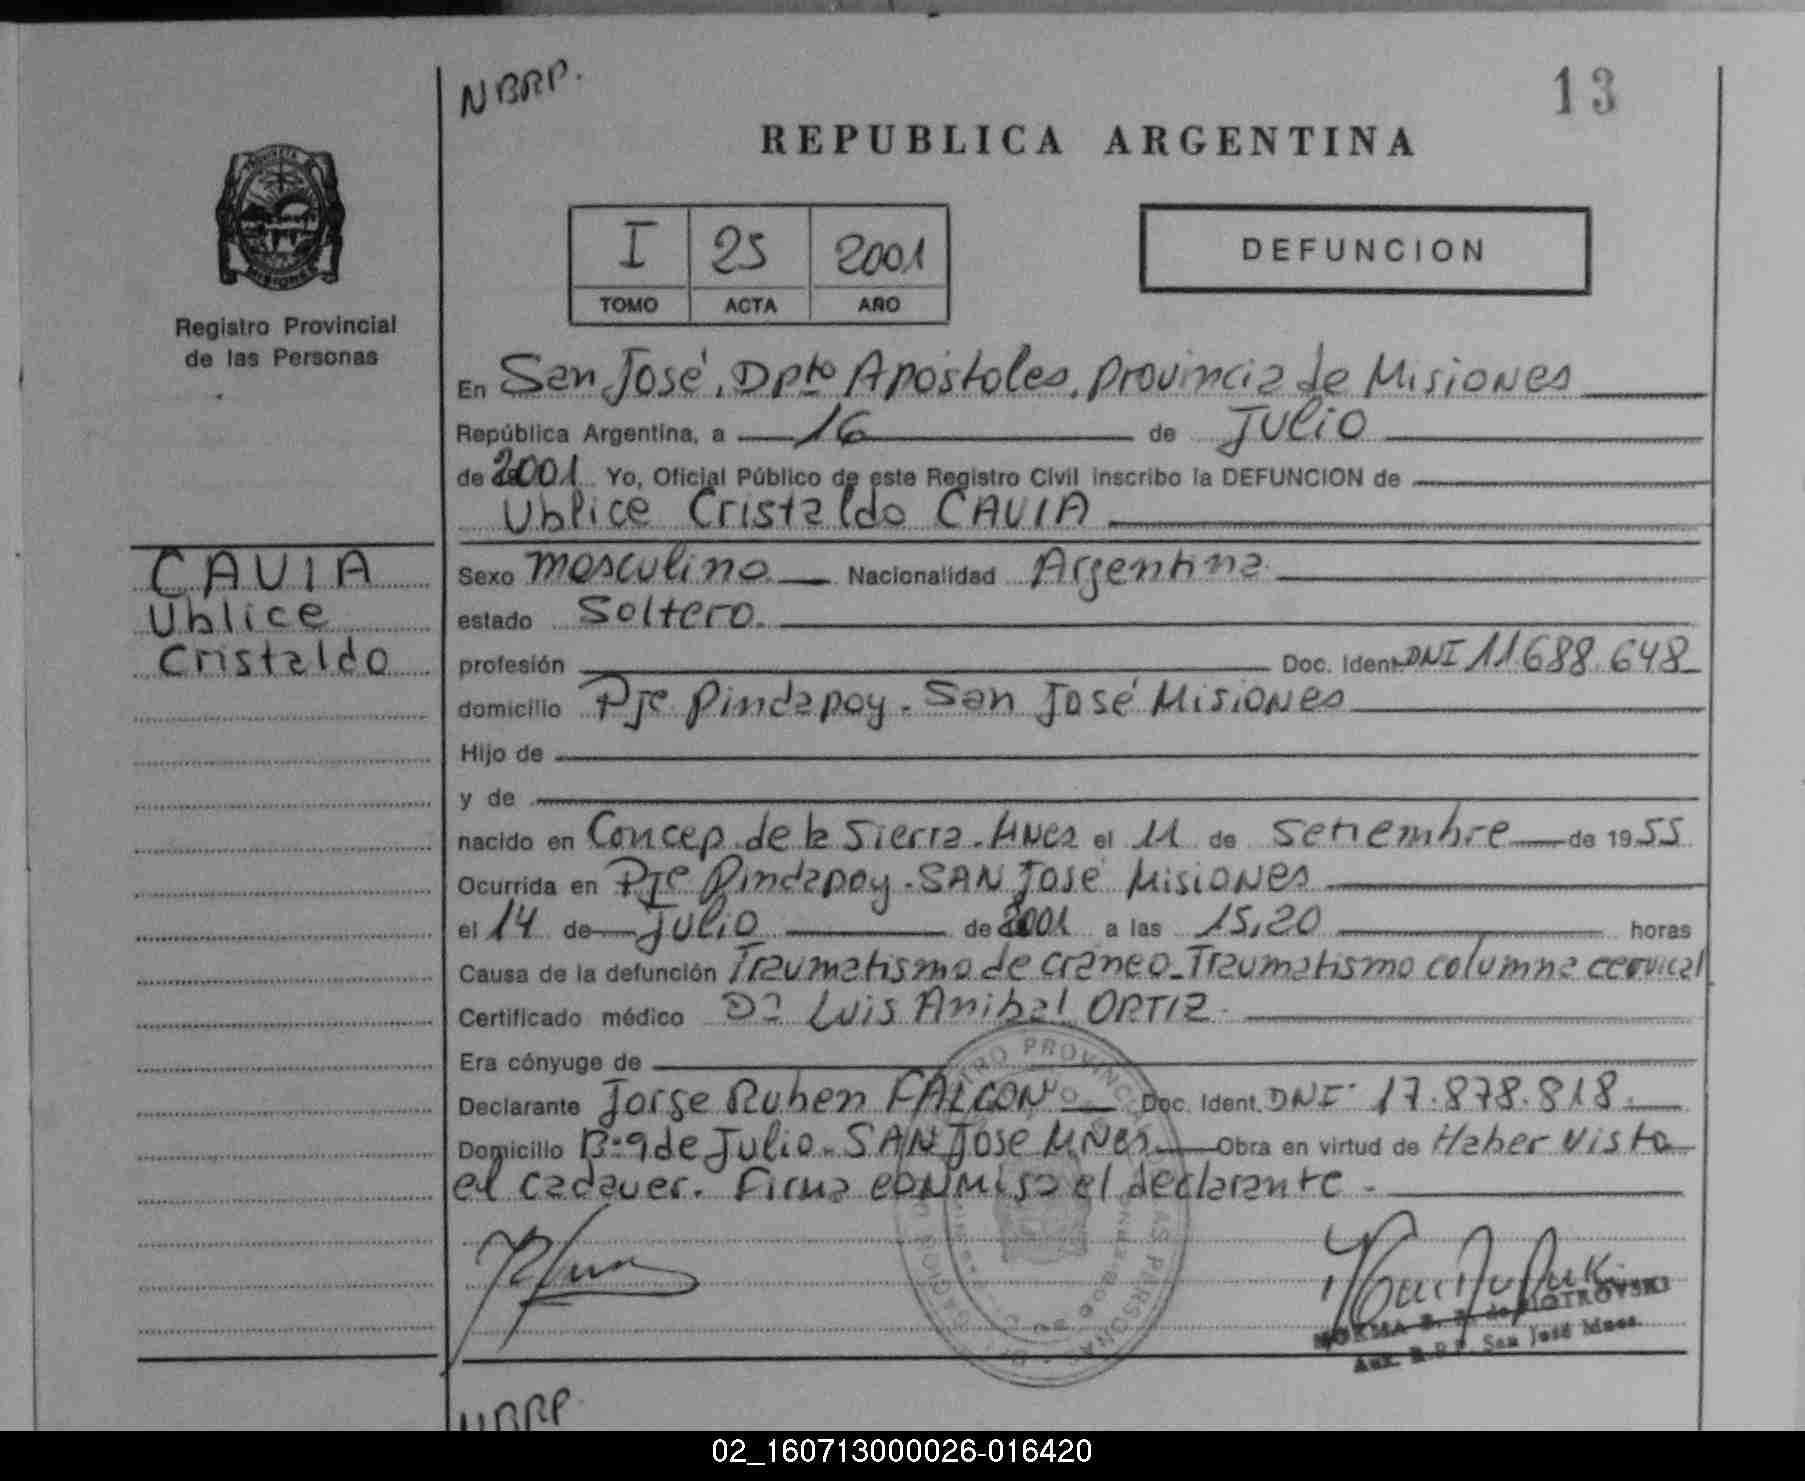 NBRP.
13
REPUBLICA ARGENTINA
I 25 2001
TOMO ACTA AÑO
DEFUNCION
Registro Provincial
de las Personas
En San José, Dpto Apóstoles, Provincia de Misiones
República Argentina, a 16 de Julio
de 2001 Yo, Oficial Público de este Registro Civil inscribo la DEFUNCION de
Ublice Cristaldo CAVIA
CAVIA
Ublice
Cristaldo
Sexo masculino Nacionalidad Argentina
estado Soltero.
profesión Doc. Ident. DNI 11688.648
domicilio Pje Pindapoy - San José Misiones
Hijo de
y de
nacido en Concep. de la Sierra - Mnes el 11 de Setiembre de 1955
Ocurrida en Pje Pindapoy - SAN José Misiones
el 14 de Julio de 2001 a las 15,20 horas
Causa de la defunción Traumatismo de craneo - Traumatismo columna cervical
Certificado médico Dr Luis Anibal ORTIZ
Era cónyuge de
Declarante Jorge Ruben FALCON Doc. Ident. DNI 17.878.818
Domicilio Bº 9 de Julio - SAN Jose Mnes Obra en virtud de Haber visto
el cadaver. Firma conmigo el declarante -
NORMA de PIOTROVSKI
Aux. R.P.P. San José Mnes.
NBRP
02_160713000026-016420